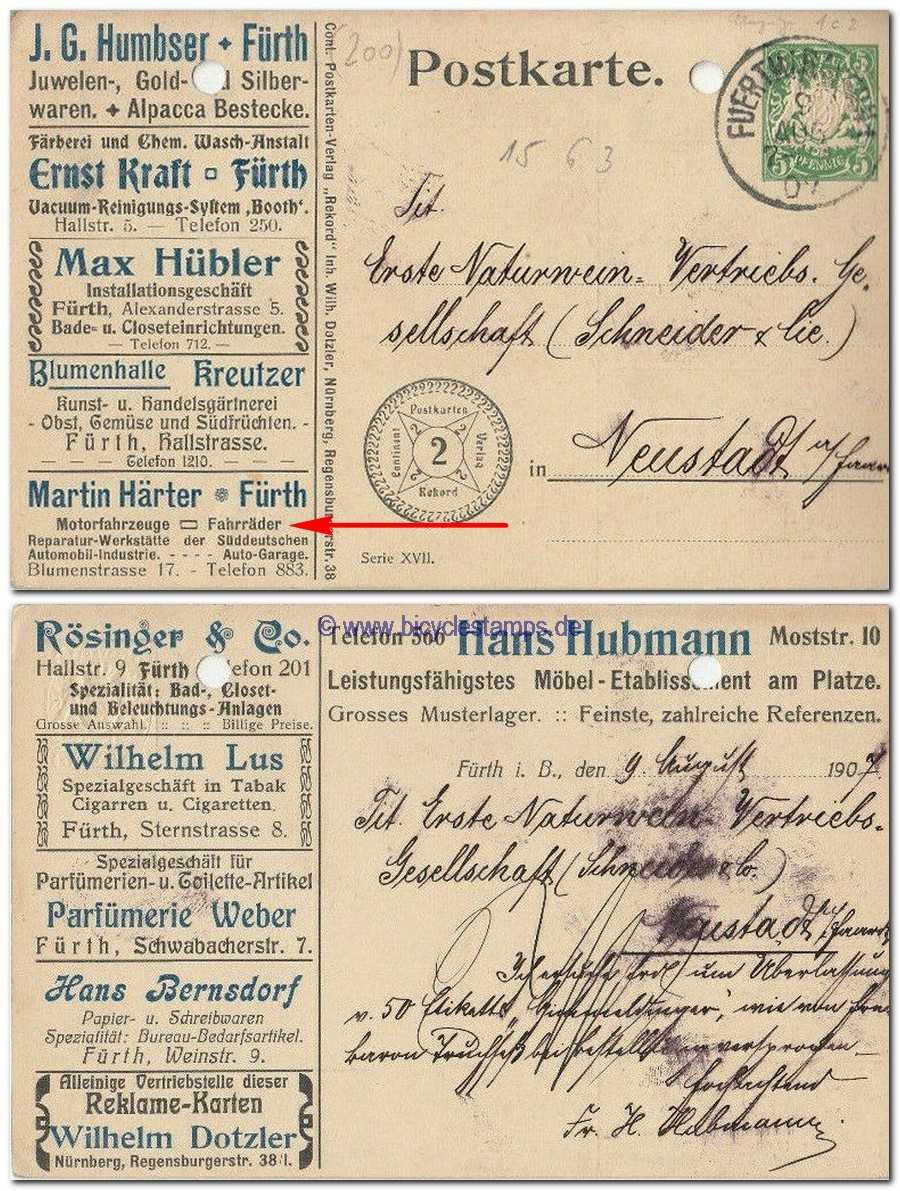 J. G. Humbser + Fürth
Juwelen-, Gold- und Silber-
waren. + Alpacca Bestecke.
Färberei und Chem. Wasch-Anstalt
Ernst Kraft Fürth
Vacuum-Reinigungs-System „Booth“.
Hallstr. 5. — Telefon 250.
Max Hübler
Installationsgeschäft
Fürth, Alexanderstrasse 5.
Bade- u. Closeteinrichtungen.
— Telefon 712. —
Blumenhalle Kreutzer
Kunst- u. Handelsgärtnerei
- Obst, Gemüse und Südfrüchten. -
Fürth, Hallstrasse.
— Telefon 1210. —
Martin Härter Fürth
Motorfahrzeuge Fahrräder
Reparatur-Werkstätte der Süddeutschen
Automobil-Industrie. - - - - Auto-Garage.
Blumenstrasse 17. - Telefon 883.
Cont. Postkarten-Verlag „Rekord“ Inh. Wilh. Dotzler, Nürnberg, Regensburgerstr. 38
200)
1 c 2
Postkarte.
FUERTH
9
AUG
07
5 5
PFENNIG
15 6 3
Tit.
Erste Naturwein- Vertriebs. Ge-
sellschaft (Schneider & Cie.)
in Neustadt a/Haardt
Postkarten
Continent 2 Verlag
Rekord
2 2 2 2
Serie XVII.
Rösinger & Co.
Hallstr. 9 Fürth Telefon 201
Spezialität: Bad-, Closet-
und Beleuchtungs-Anlagen
Grosse Auswahl. :: :: :: Billige Preise.
Wilhelm Lus
Spezialgeschäft in Tabak
Cigarren u. Cigaretten.
Fürth, Sternstrasse 8.
Spezialgeschäft für
Parfümerien- u. Toilette-Artikel
Parfümerie Weber
Fürth, Schwabacherstr. 7.
Hans Bernsdorf
Papier- u. Schreibwaren
Spezialität: Bureau-Bedarfsartikel.
Fürth, Weinstr. 9.
Alleinige Vertriebstelle dieser
Reklame-Karten
Wilhelm Dotzler
Nürnberg, Regensburgerstr. 38 I.
© www.bicyclestamps.de
Telefon 566 Hans Hubmann Moststr. 10
Leistungsfähigstes Möbel-Etablissement am Platze.
Grosses Musterlager. :: Feinste, zahlreiche Referenzen.
Fürth i. B., den 9. August 1907
Tit. Erste Naturwein- Vertriebs-
Gesellschaft (Schneider & Co.)
Neustadt a/Haardt
Ich ersuche um Überlassung
v. 50 Etiketts, wie von
baron Truchseß bei versprochen
hochachtend
Fr. H. Hubmann